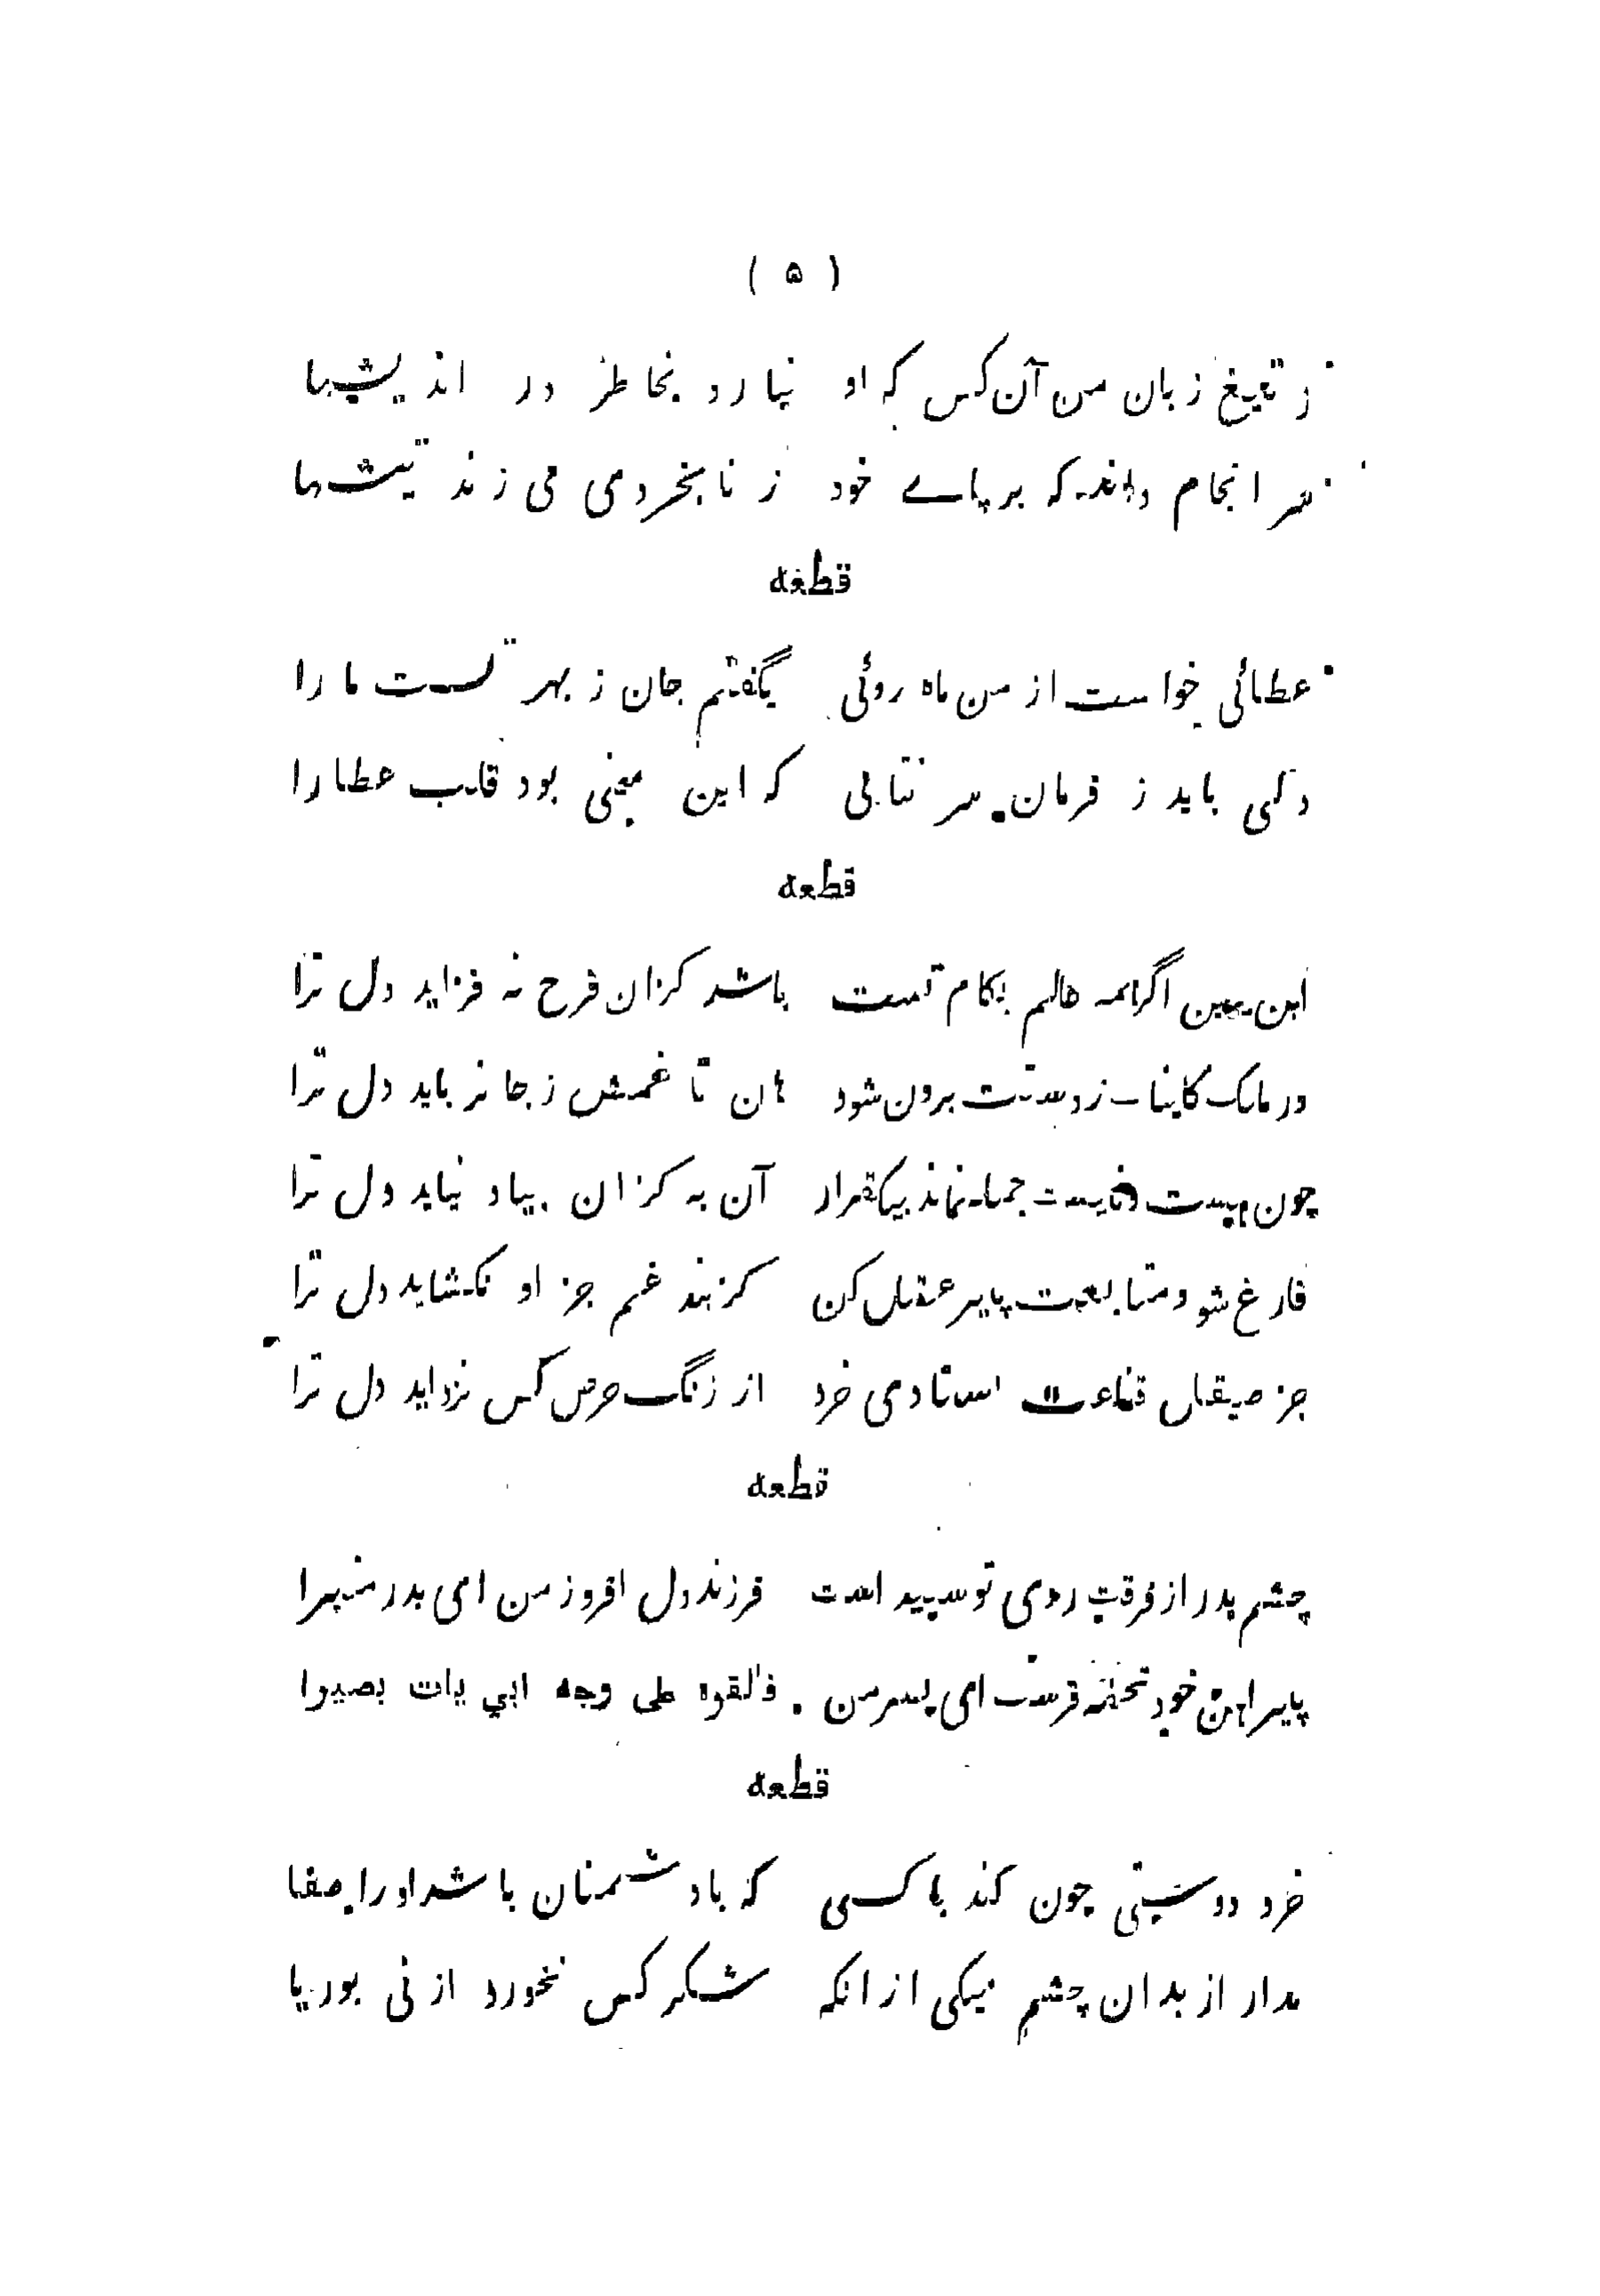 ( ۵ )
ز تیغ زبان من آن کس که او نیارد بخاطر در اندیشها
سر انجام داند که بر پاے خود ز نابخردی می زند تیشها
قطعه
عطائی خواست از من ماه روئی بگفتم جان ز بهر تست ما را
ولی باید ز فرمان سر نتابی که این معنی بود قلب عطا را
قطعه
ابن یمین اگر همه عالم بکام تست باشد کزان فرح نه فزاید دل ترا
ور ملک کاینات ز دستت برون شود هان تا غمش ز جا نرباید دل ترا
چون هست و نیست جمله نماند بیکقرار آن به کزان بیاد نیاید دل ترا
فارغ شو و متابعت پیر عقل کن کز بند غم جز او نکشاید دل ترا
جز صیقل قناعت استادی خرد از زنگ حرص کس نزداید دل ترا
قطعه
چشم پدر از فرقت روی تو سپید است فرزند دل افروز من ای بدر منیرا
پیراهن خود تحفه فرست ای پسر من فالقوه علی وجه ابي یات بصیرا
قطعه
خرد دوستی چون کند با کسی که با دشمنان باشد او را صفا
مدار از بدان چشم نیکی ازانکه شکر کس نخورد از نی بوریا